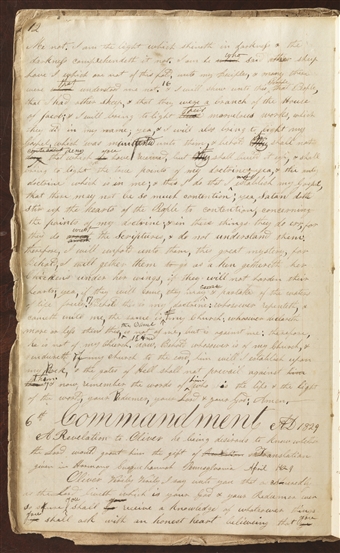 12
me not. I am the light which shineth in darkness & the
darkness comprehendeth it not. I am he which said other sheep
have I which are not of this fold, unto my Disciples, & many there
were that understood me not. & I will shew unto this People,
that I had other sheep, & that they were a branch of the House
of Jacob; & I will bring to light their marvelous works, which
they did in my name; yea, & I will also bring to light my
Gospel, which was ministered unto them; & behold they shall not
deny that which you have received, but they shall build it up, & shall
bring to light the true points of my doctrine; yea, & the only
doctrine which is in me; & this I do that I may establish my Gospel,
that there may not be so much contention; yea, Satan doth
stir up the hearts of the People to contention, concerning
the points of my doctrine; & in these things they do err, for
they do wrest the Scriptures, & do not understand them;
therefore, I will unfold unto them this great mystery, for
behold, I will gather them together as a hen gathereth her
chickens under her wings, if they will not harden their
hearts; yea, if they will come, they may, & partake of the waters
of life freely. Behold this is my doctrine: whosoever repenteth, &
cometh unto me, the same is my Church; whosoever declareth
more or less than this, the same is not of me, but is against me; therefore,
he is not of my Church. & now, Behold whosoever is of my Church, &
endureth of my Church to the end, him will I establish upon
my Rock, & the gates of Hell shall not prevail against him
& now, remember the words of him who is the life & the light
of the world, your Redeemer, your Lord & your God; Amen.
6th Commandment AD 1829
A Revelation to Oliver he being desirous to know whether
the Lord would grant him the gift of Translation
given in Harmony Susquehannah Pennsylvania April 1829
Oliver Verily Verily I say unto you that as
the Lord liveth which is your God & your Redeemer even
so shall you receive a knowledge of whatsoever things
you shall ask with an honest heart believing that you